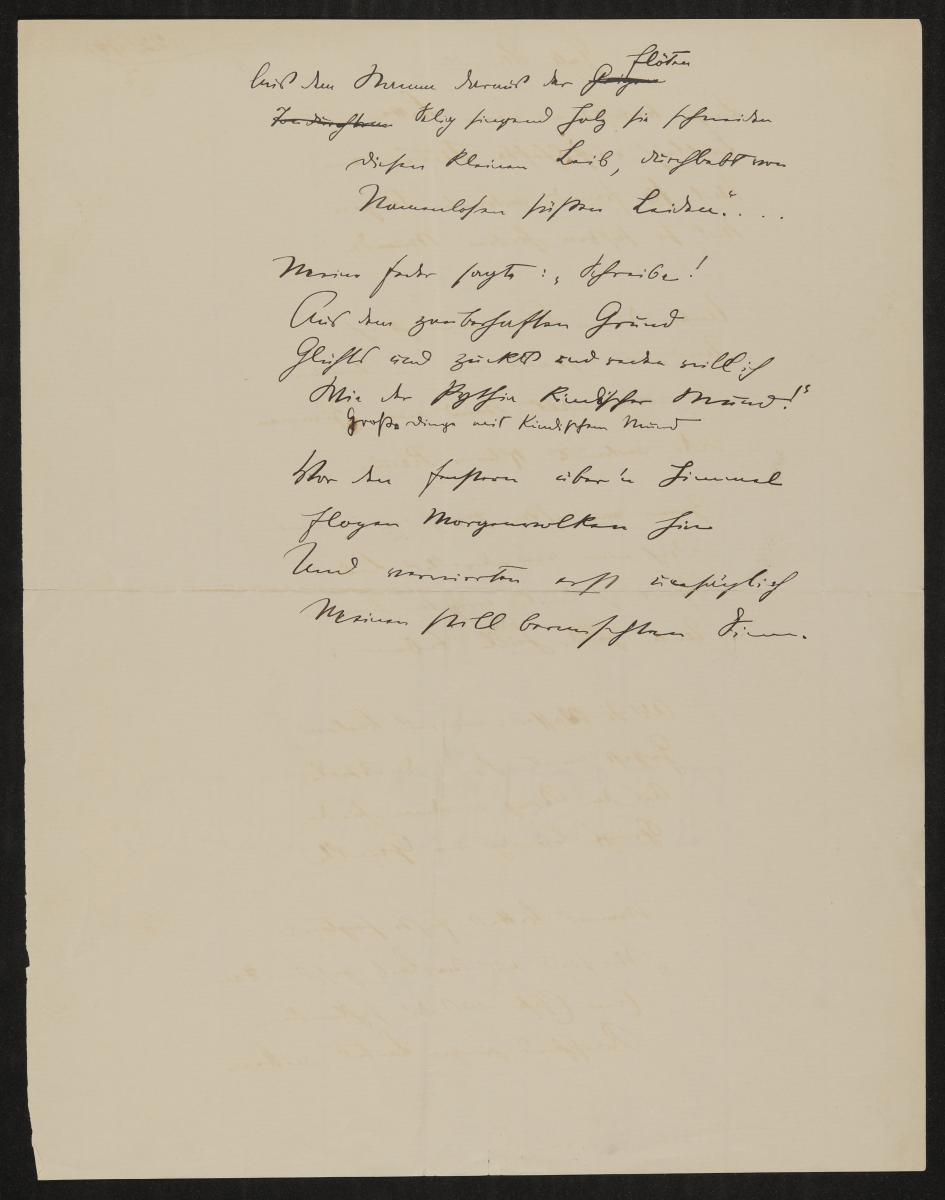 aus dem Stamm daraus der ~~Geigen~~ Flöten
Selig singend Holz sie schneiden
diesen kleinen Leib, durchbebt von
Namenlosen süßen Leiden."....
Meine Feder sagte: „Schreibe!
Aus dem zauberhaften Grund
Glühts und zuckts und reden will ich
Wie der Pythia kindischer Mund!"
Große Dinge mit kindischem Mund
Vor den Fenstern über'n Himmel
Flogen Morgenwolken hin
Und verwirrten erst unsäglich
Meinen still berauschten Sinn.